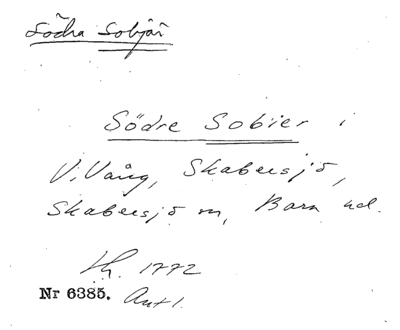 Södra Sobjär
Södre Sobier i
V. Vång, Skabersjö,
Skabersjö sn, Bara hd.
Lh. 1772
Nr 6385. Ant 1.